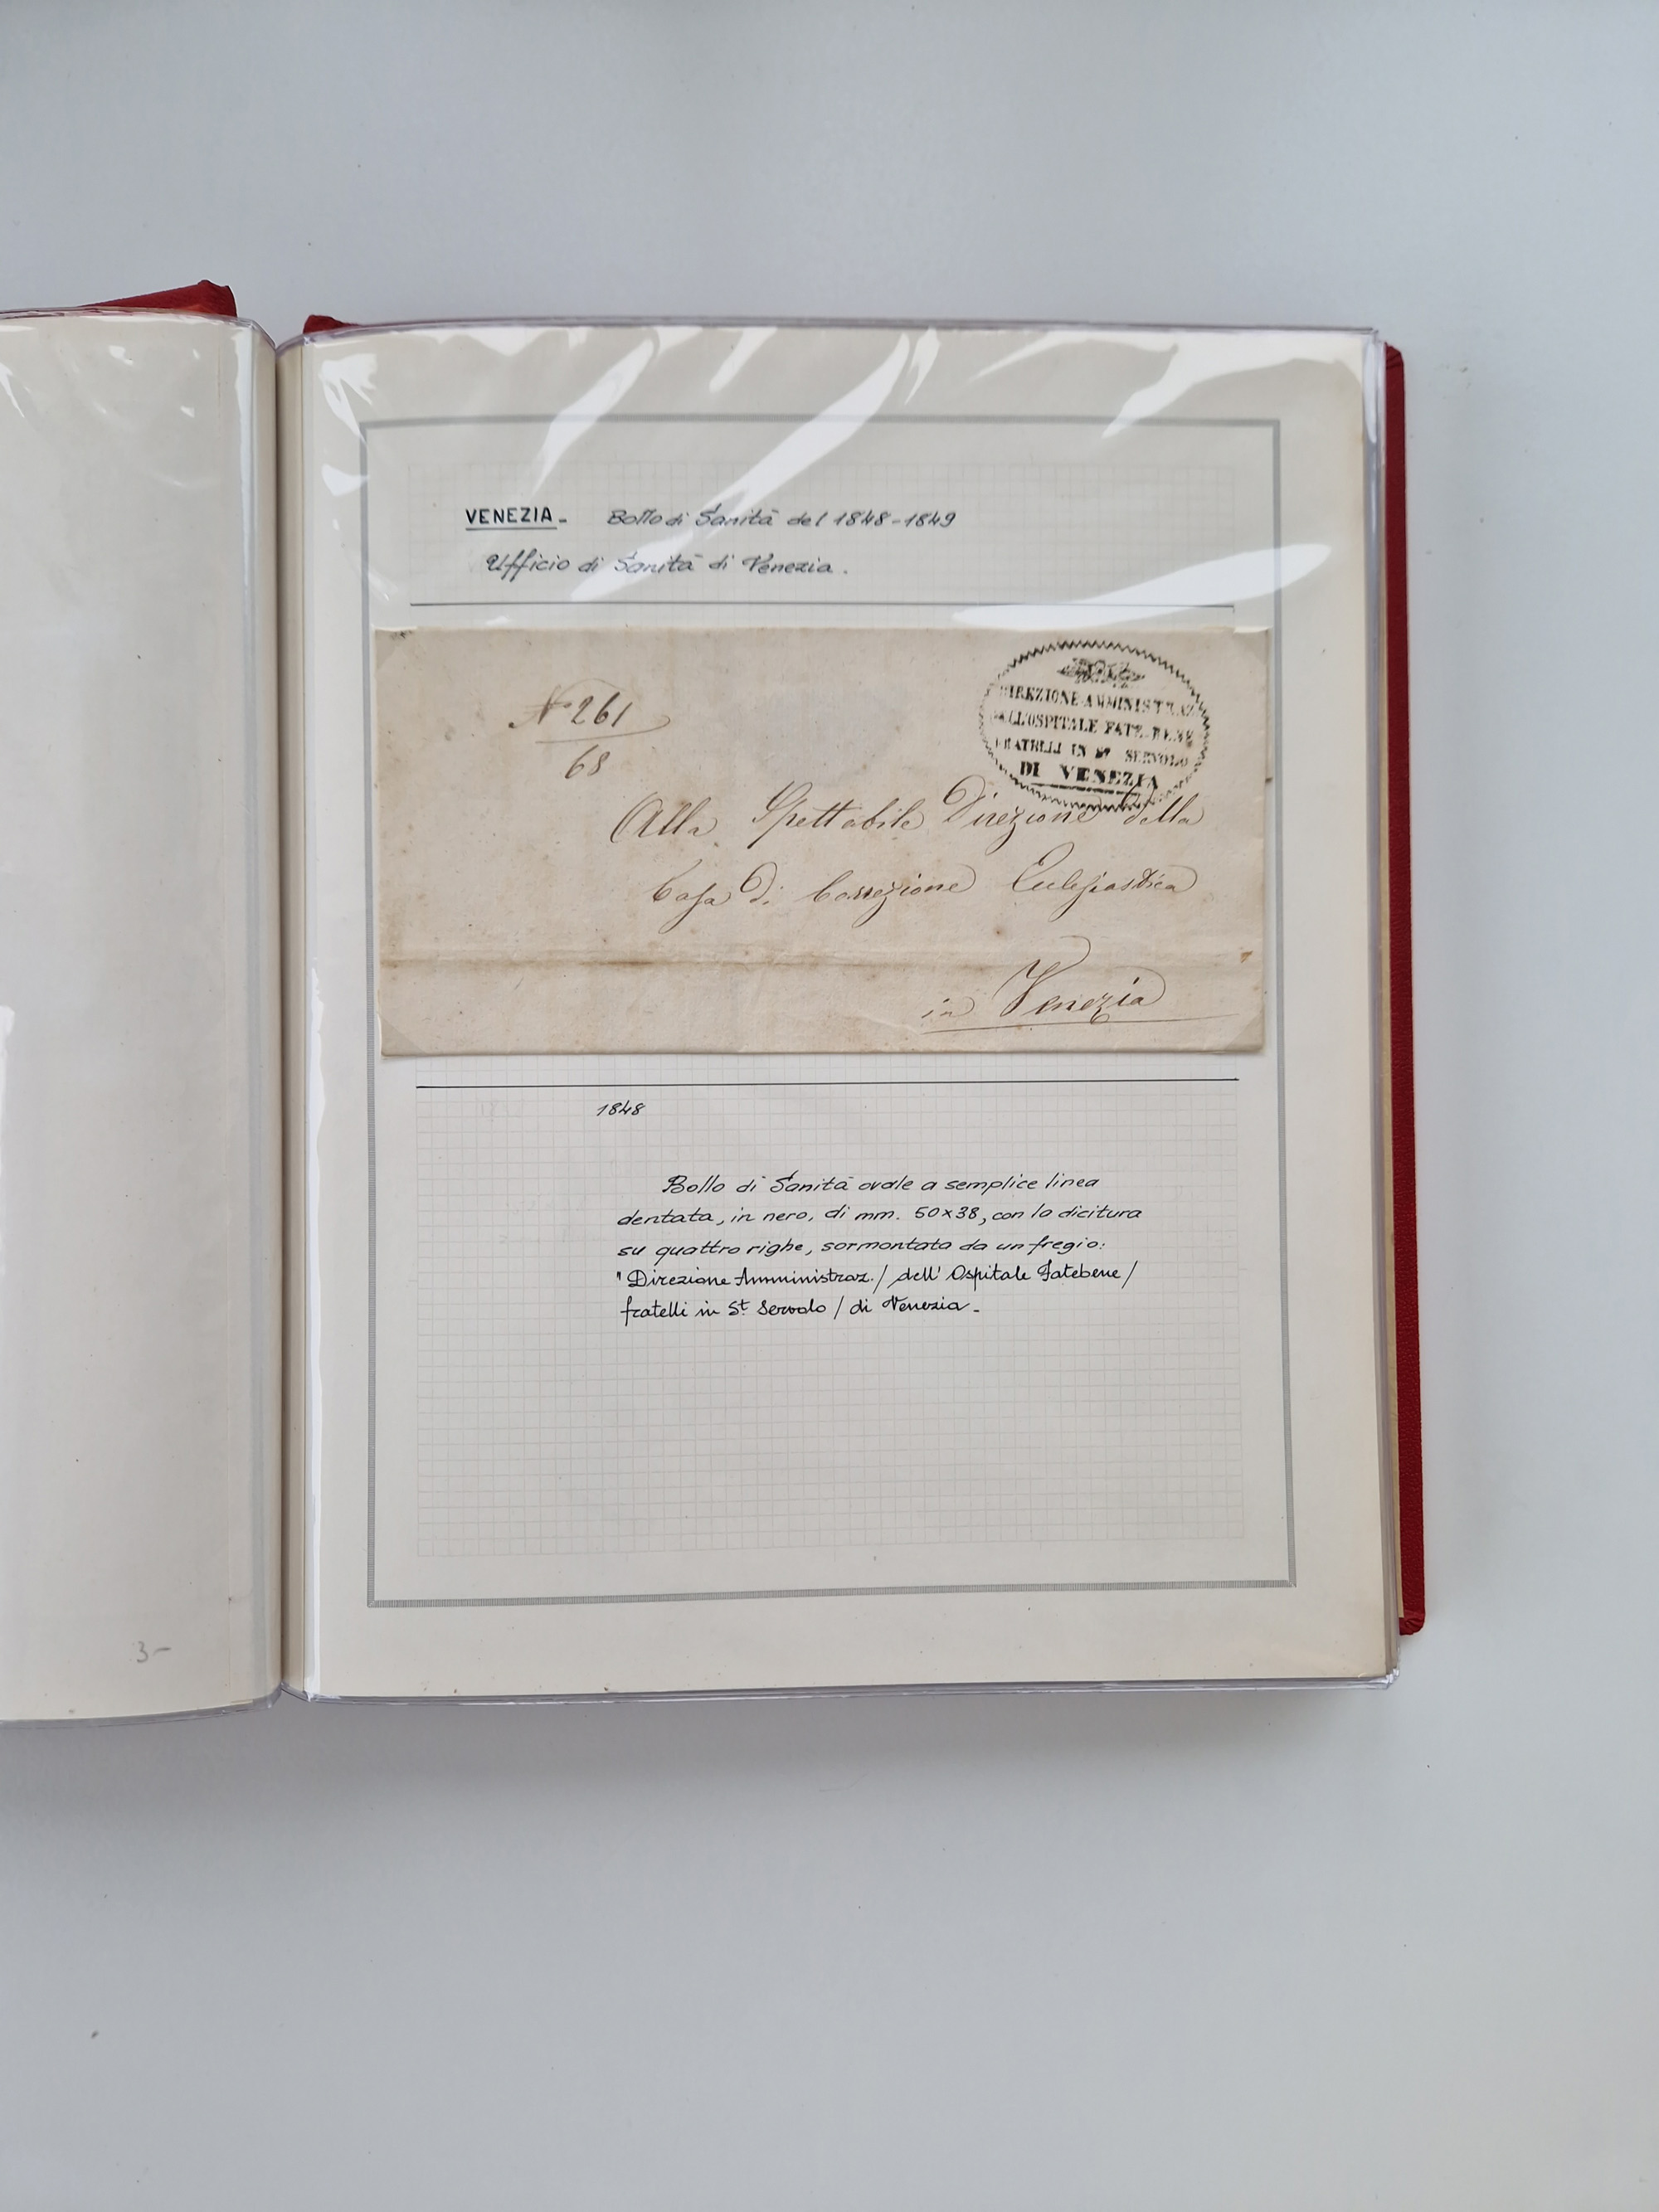 VENEZIA. Bollo di Sanità del 1848-1849
Ufficio di Sanità di Venezia.
N° 261
68
DIREZIONE AMMINISTRAZ.
DELL'OSPITALE FATE-BENE
FRATELLI IN Sᵀ SERVOLO
DI VENEZIA
Alla Spettabile Direzione della
Casa Di Correzione Eclesiastica
in Venezia
1848
Bollo di Sanità ovale a semplice linea
dentata, in nero, di mm. 50x38, con la dicitura
su quattro righe, sormontata da un fregio:
"Direzione Amministraz./ dell' Ospitale Fatebene/
fratelli in Sᵗ Servolo / di Venezia.
3-